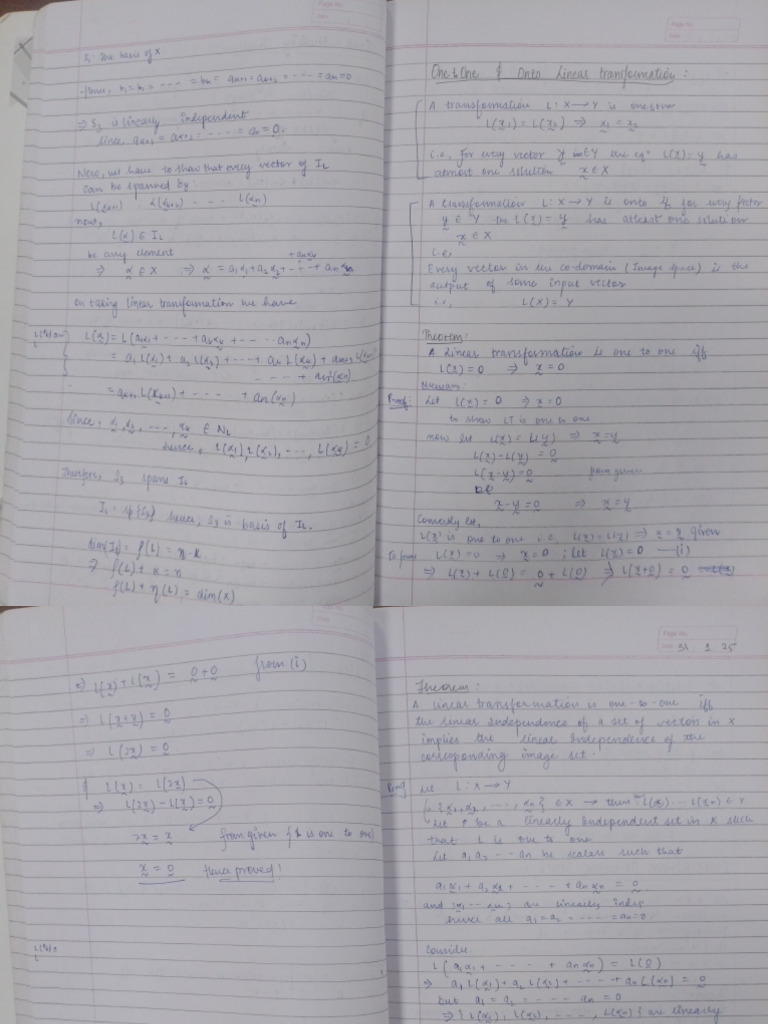 S₁ the basis of X
Hence, b₁ = b₂ = ---- = bₙ = aₖ₊₁ = aₖ₊₂ = ---- = aₙ = 0
⇒ S₂ is linearly independent
Since aₖ₊₁ = aₖ₊₂ = ----- = aₙ = 0.
Now, we have to show that every vector of I_L
can be spanned by
L(αₖ₊₁) L(αₖ₊₂) --- L(αₙ)
now,
L(α) ∈ I_L
be any element
⇒ α ∈ X ⇒ α = a₁α₁ + a₂α₂ + --- + aₖαₖ + --- + aₙαₙ
on taking linear transformation we have
L(α) = L(a₁α₁ + ---- + aₖαₖ + -- -- aₙαₙ)
= a₁L(α₁) + a₂L(α₂) + --- + aₖL(αₖ) + aₖ₊₁L(αₖ₊₁)
---- + aₙL(αₙ)
= aₖ₊₁L(αₖ₊₁) + --- + aₙ(αₙ)
Since, α₁, α₂, ---, αₖ ∈ N_L
hence, L(α₁), L(α₂), ---, L(αₖ) = 0
Therefore, S₂ spans I_L
I_L = sp{S₂} hence, S₂ is basis of I_L.
dim(I_L) = ρ(L) = n-k
⇒ ρ(L) + k = n
ρ(L) + η(L) = dim(X)
Page No.
Date
One to One & Onto Linear transformation:
A transformation L: X → Y is one to one
L(x₁) = L(x₂) ⇒ x₁ = x₂
i.e., for every vector y in Y the eqⁿ L(x) = y has
atmost one solution x ∈ X
A transformation L: X → Y is onto if for every vector
y ∈ Y the L(x) = y has atleast one solution
x ∈ X
i.e.
Every vector in the co-domain (Image space) is the
output of some input vector
i.e., L(X) = Y
Theorem:
A linear transformation is one to one iff
L(x) = 0 ⇒ x = 0
Proof: Let L(x) = 0 ⇒ x = 0
to show LT is one to one
now let L(x) = L(y) ⇒ x = y
L(x) - L(y) = 0
L(x-y) = 0 from given
x - y = 0 ⇒ x = y
Conversely let,
L(x) is one to one i.e., L(x) = L(y) ⇒ x = y given
To prove L(x) = 0 ⇒ x = 0 ; let L(x) = 0 —(i)
⇒ L(x) + L(0) = 0 + L(0) ⇒ L(x+0) = 0
⇒ L(x) + L(x) = 0 + 0 from (i)
⇒ L(x+x) = 0
⇒ L(2x) = 0
if L(x) = L(2x)
⇒ L(2x) - L(x) = 0
2x = x from given {L is one to one}
x = 0 Hence proved!
Page No.
Date 31 1 25
Theorem:
A linear transformation is one-to-one iff
the linear independence of a set of vectors in X
implies the linear independence of the
corresponding image set.
Proof: let L: X → Y
{α₁, α₂, ---, αₙ} ∈ X → then L(α₁) -- L(αₙ) ∈ Y
Let P be a linearly Independent set in X such
that L is one to one
Let a₁ a₂ --- aₙ be scalars such that
a₁α₁ + a₂α₂ + --- + aₙαₙ = 0
and α₁ -- αₙ are linearly indep
hence all a₁ = a₂ = ---- = aₙ = 0.
Consider
L(a₁α₁ + ---- + aₙαₙ) = L(0)
⇒ a₁L(α₁) + a₂L(α₂) + --- + aₙL(αₙ) = 0
but a₁ = a₂ = --- aₙ = 0
⇒ {L(α₁), L(α₂), ---, L(αₙ)} are linearly